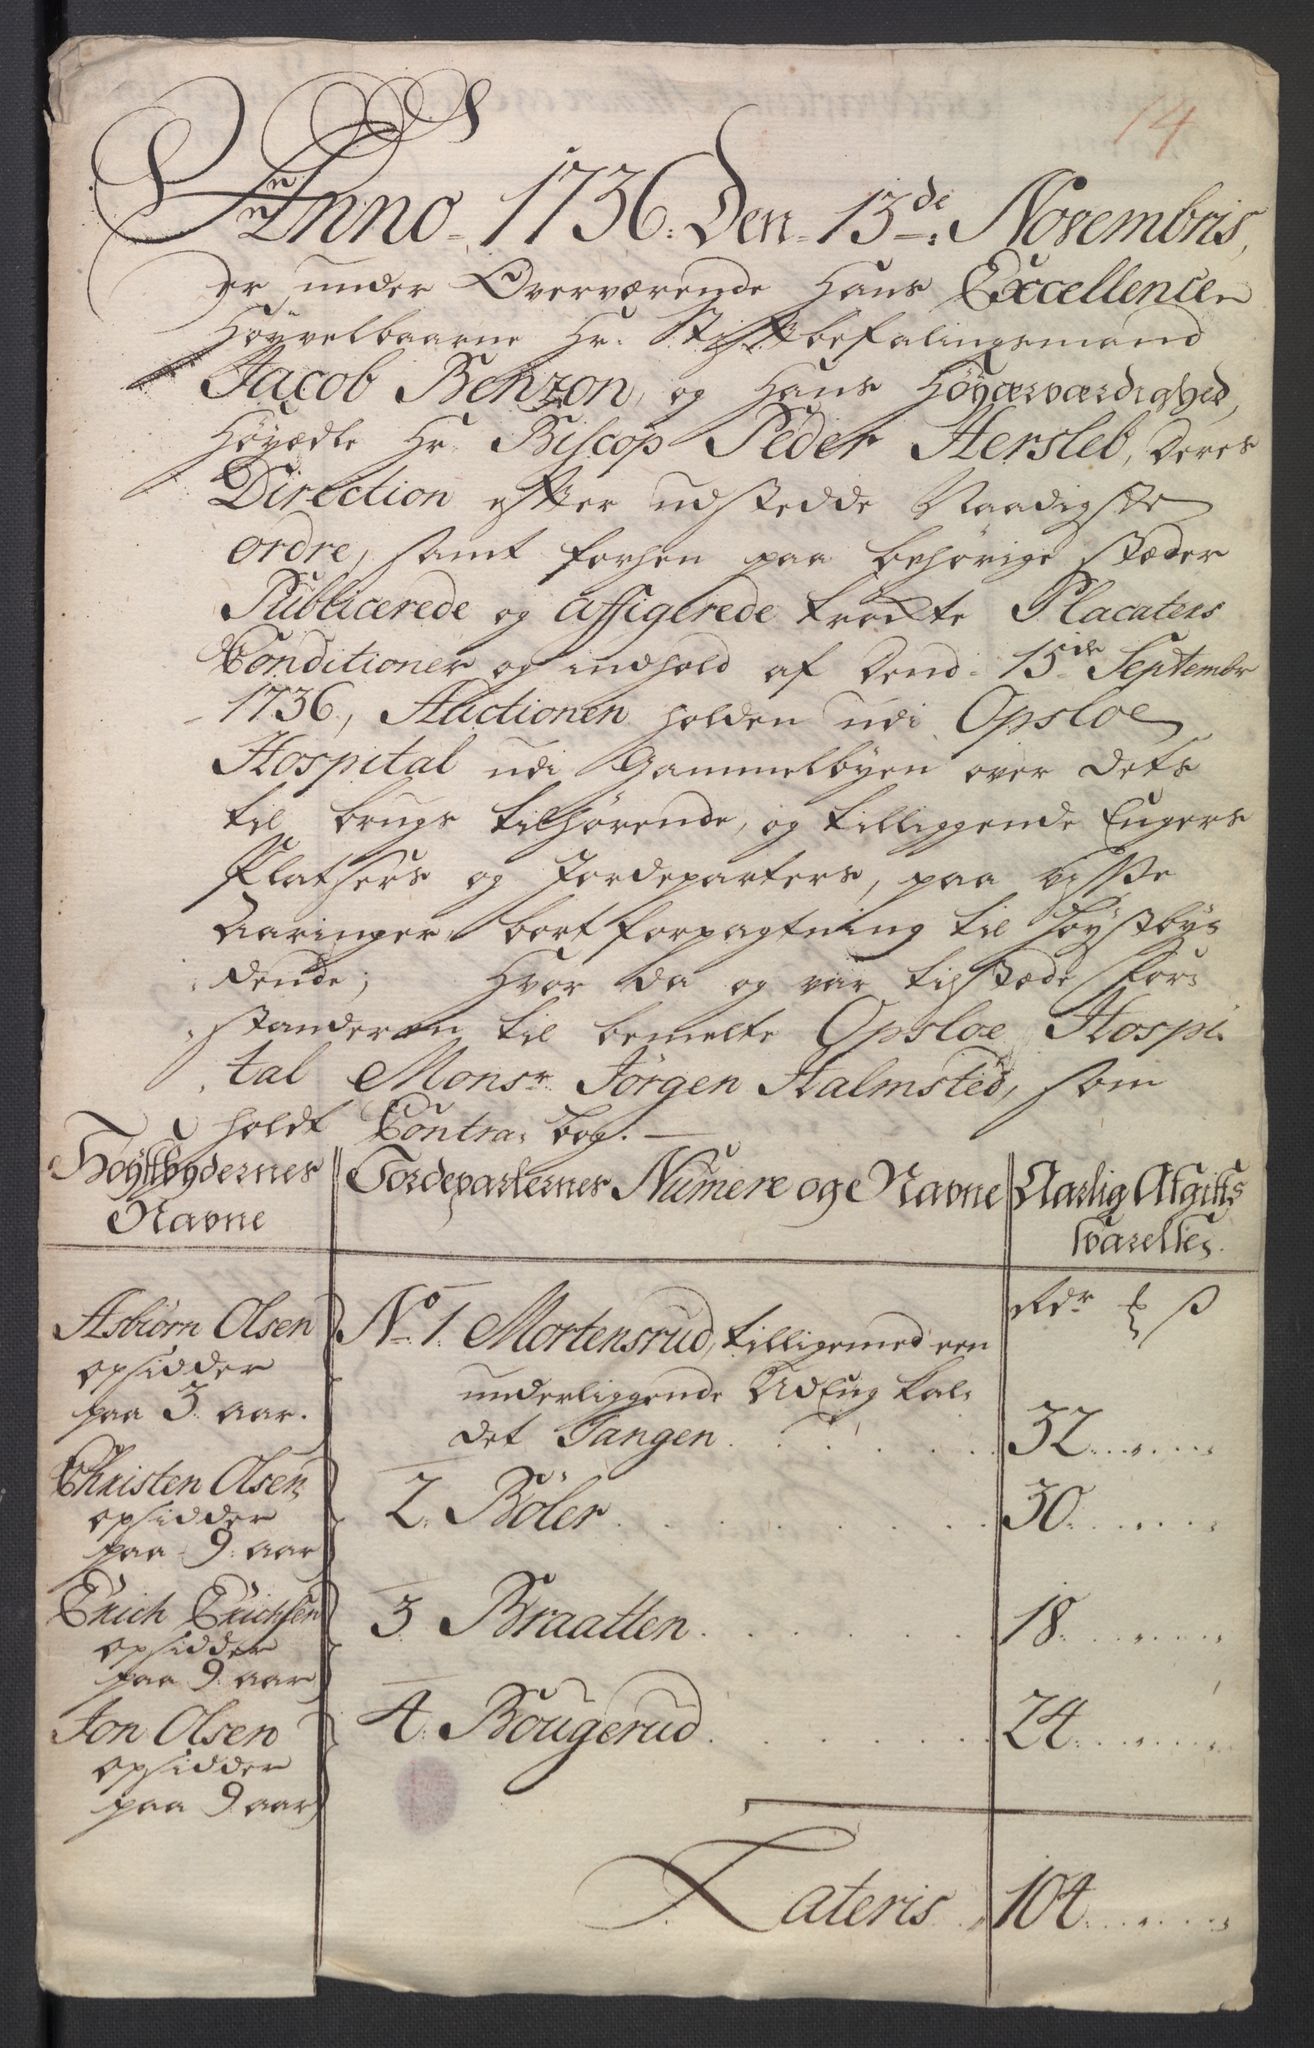 14
Anno 1736. Den 13de Novembris,
er under Overværende Hans Excellence
Høyvelbaarne Hr. Stiftbefalingsmand
Jacob Benzon, og Hans Høyærværdighed,
Høyædle Hr. Biscop Peder Hersleb, Deres
Direction efter udstedde Naadigste
ordre, samt forhen paa behørige stæder
Publicerede og affigerede trökte Placaters
Conditioner og indhold af Dend 15de Septembr
1736, Auctionen holden udi Opsloe
Hospital udi Gammelbyen over dets
til brugs tilhørende, og tilliggende Engers
Platsers og Jordeparters, paa visse
Aaringer bortforpagtning til Høystbÿ-
dende; Hvor da og var tilstæde For-
standeren til bemelte Opsloe Hospi-
tal Monsr Jörgen Halmsted, som
holdt Contra bog.
Høystbydernes Navne | Jordeparternes Numere og Navne | Aarlig Afgifts Svarelse.
Rdr ß
Asbiörn Olsen opsidder paa 3 aar. | No 1. Mortensrud, tilligemed een
underliggende UdEng kal-
det Tangen | 32
Christen Olsen opsidder paa 9 aar | 2. Böler | 30
Erich Erichsen opsidder paa 9 aar | 3. Braatten | 18
Jon Olsen opsidder paa 9 aar | 4. Bougerud | 24
Lateris | 104